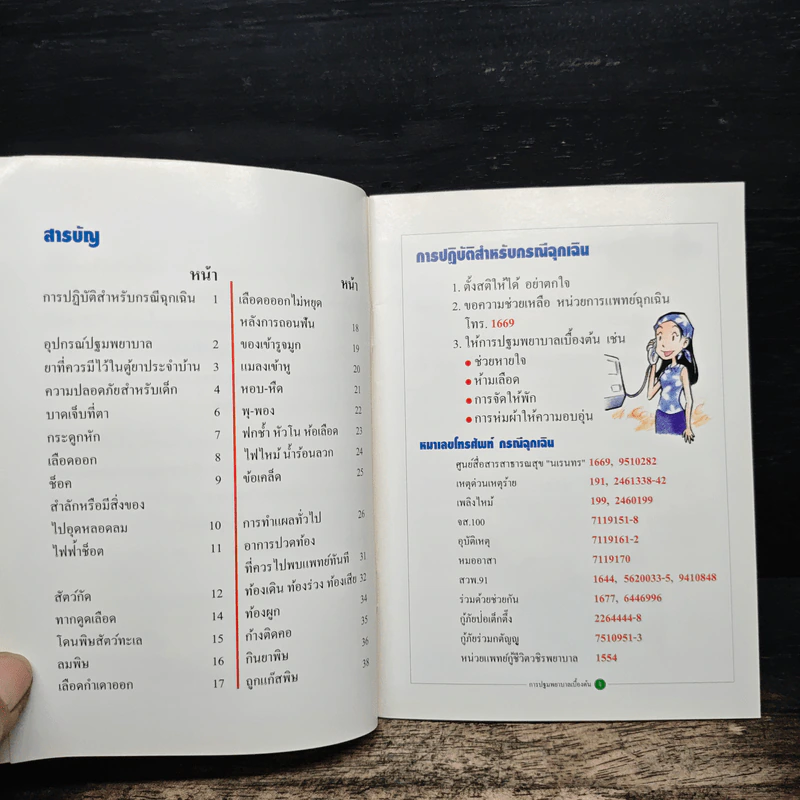 สารบัญ
หน้า
การปฏิบัติสำหรับกรณีฉุกเฉิน 1
อุปกรณ์ปฐมพยาบาล 2
ยาที่ควรมีไว้ในตู้ยาประจำบ้าน 3
ความปลอดภัยสำหรับเด็ก 4
บาดเจ็บที่ตา 6
กระดูกหัก 7
เลือดออก 8
ช็อค 9
สำลักหรือมีสิ่งของ
ไปอุดหลอดลม 10
ไฟฟ้าช็อต 11
สัตว์กัด 12
ทากดูดเลือด 14
โดนพิษสัตว์ทะเล 15
ลมพิษ 16
เลือดกำเดาออก 17
หน้า
เลือดอออกไม่หยุด
หลังการถอนฟัน 18
ของเข้ารูจมูก 19
แมลงเข้าหู 20
หอบ-หืด 21
พุ-พอง 22
ฟกช้ำ หัวโน ห้อเลือด 23
ไฟไหม้ น้ำร้อนลวก 24
ข้อเคล็ด 25
การทำแผลทั่วไป 26
อาการปวดท้อง
ที่ควรไปพบแพทย์ทันที 31
ท้องเดิน ท้องร่วง ท้องเสีย 32
ท้องผูก 34
ก้างติดคอ 35
กินยาพิษ 36
ถูกแก๊สพิษ 38
การปฏิบัติสำหรับกรณีฉุกเฉิน
1. ตั้งสติให้ได้ อย่าตกใจ
2. ขอความช่วยเหลือ หน่วยการแพทย์ฉุกเฉิน
โทร. 1669
3. ให้การปฐมพยาบาลเบื้องต้น เช่น
● ช่วยหายใจ
● ห้ามเลือด
● การจัดให้พัก
● การห่มผ้าให้ความอบอุ่น
หมายเลขโทรศัพท์ กรณีฉุกเฉิน
ศูนย์สื่อสารสาธารณสุข "นเรนทร" 1669, 9510282
เหตุด่วนเหตุร้าย 191, 2461338-42
เพลิงไหม้ 199, 2460199
จส.100 7119151-8
อุบัติเหตุ 7119161-2
หมออาสา 7119170
สวพ.91 1644, 5620033-5, 9410848
ร่วมด้วยช่วยกัน 1677, 6446996
กู้ภัยป่อเต็กตึ๊ง 2264444-8
กู้ภัยร่วมกตัญญู 7510951-3
หน่วยแพทย์กู้ชีวิตวชิรพยาบาล 1554
การปฐมพยาบาลเบื้องต้น 1